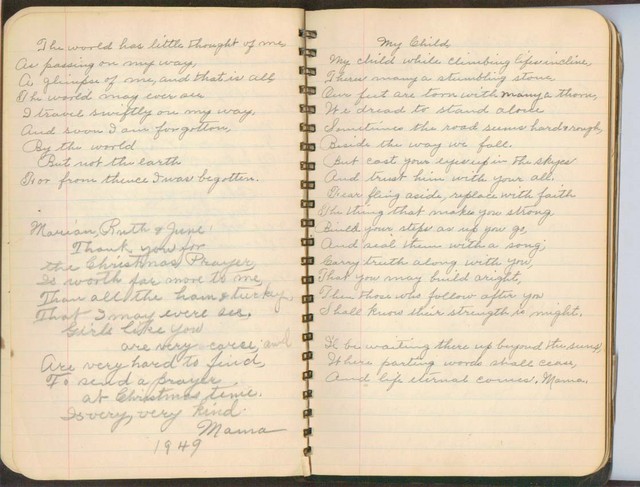 The world has little thought of me
As passing on my way,
A glimpse of me, and that is all
The world may ever see
I travel swiftly on my way
And soon I am forgotton,
By the world
But not the earth
For from thence I was begotten.
Marian, Ruth & June!
Thank you for
the Christmas Prayer
Is worth far more to me
Than all the ham & turkey,
That I may ever see.
Girls like you
are very
Are very hard to find,
To send a prayer
at Christmas time.
Is very, very kind.
Mama
1949
My Child
My child while climbing lifes incline,
Theres many a stumbling stone
Our feet are torn with many a thorn,
We dread to stand alone
Sometimes the road seems hard & rough,
Beside the way we fall.
But cast your eyes up in the skyes
And trust him with your all.
Fear fling aside, replace with faith
The thing that makes you strong
Build your steps as up you go,
And seal them with a song;
Carry truth along with you,
That you may build aright,
Then those who follow after you
Shall know their strength is might.
I'll be waiting there up beyond the sunset,
Where parting words shall cease,
And life eternal comes; Mama.